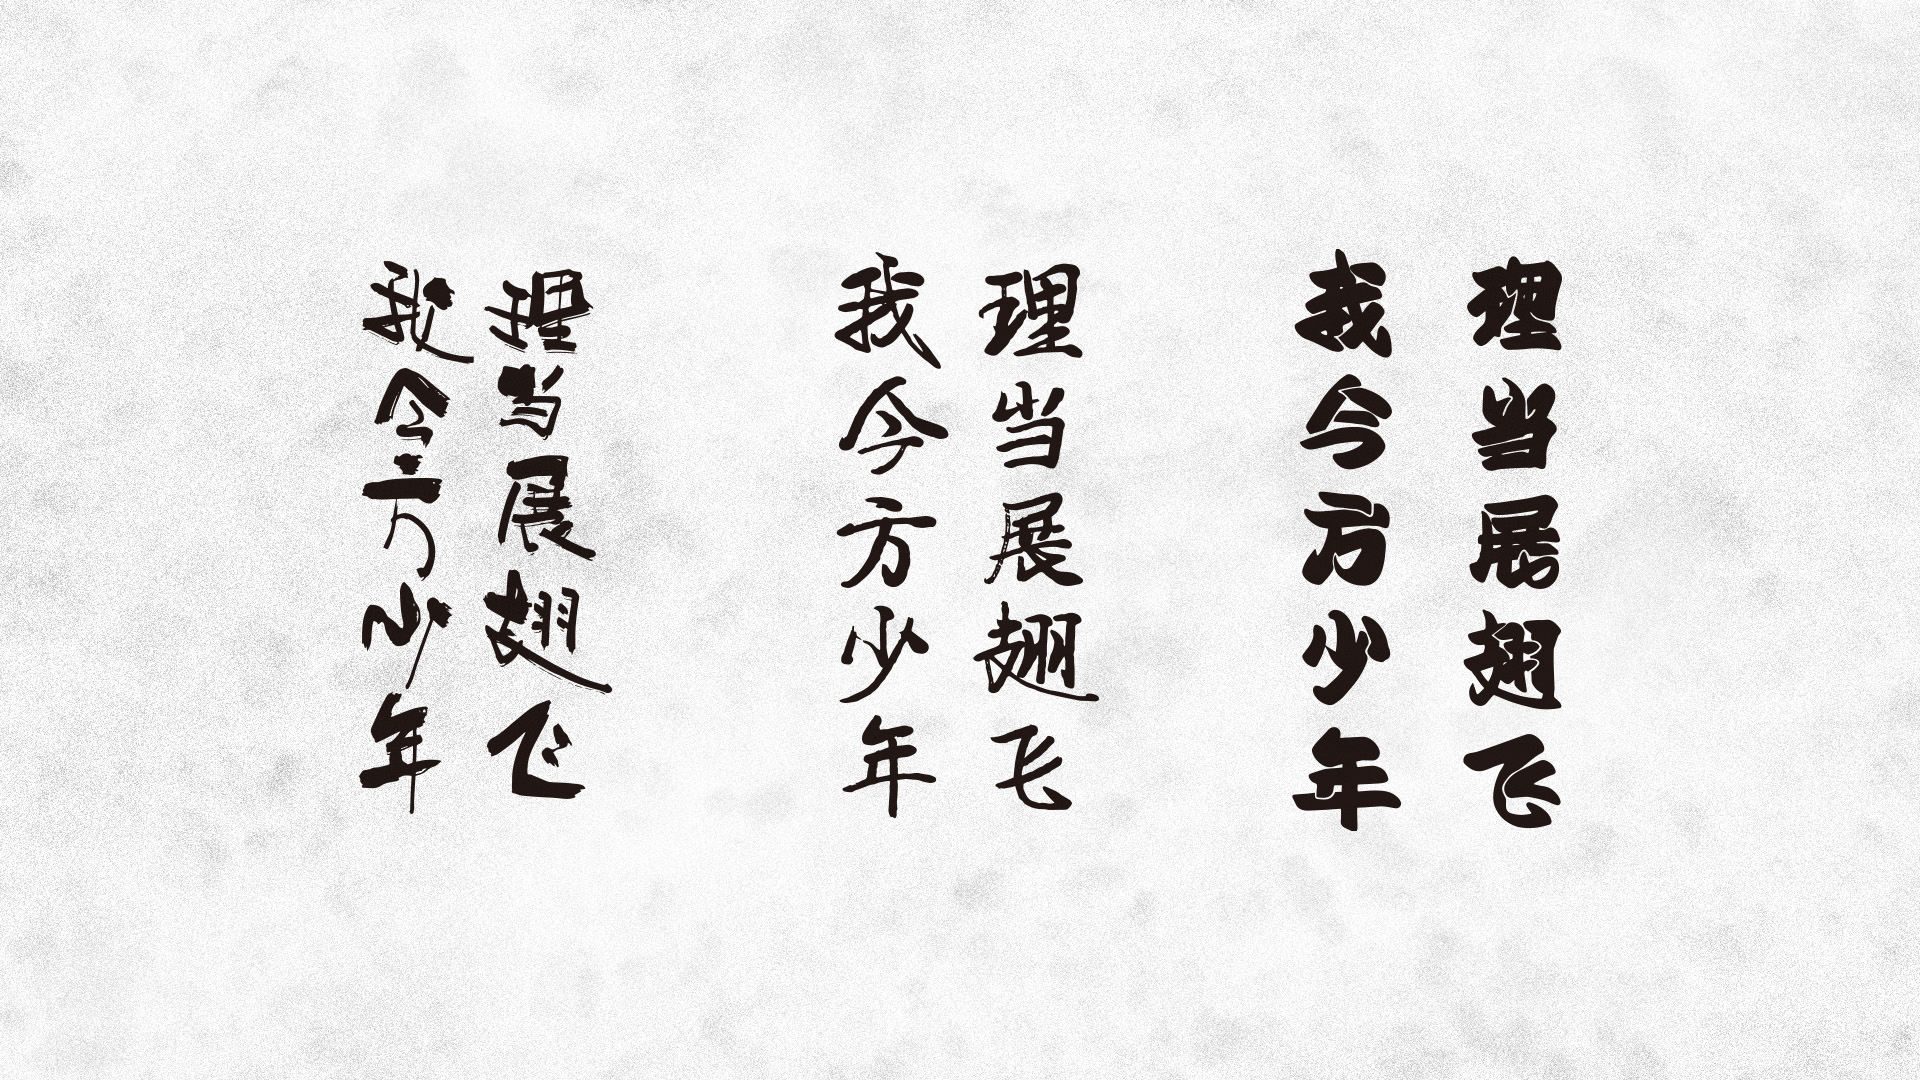 我今方少年
理当展翅飞
我今方少年
理当展翅飞
我今方少年
理当展翅飞